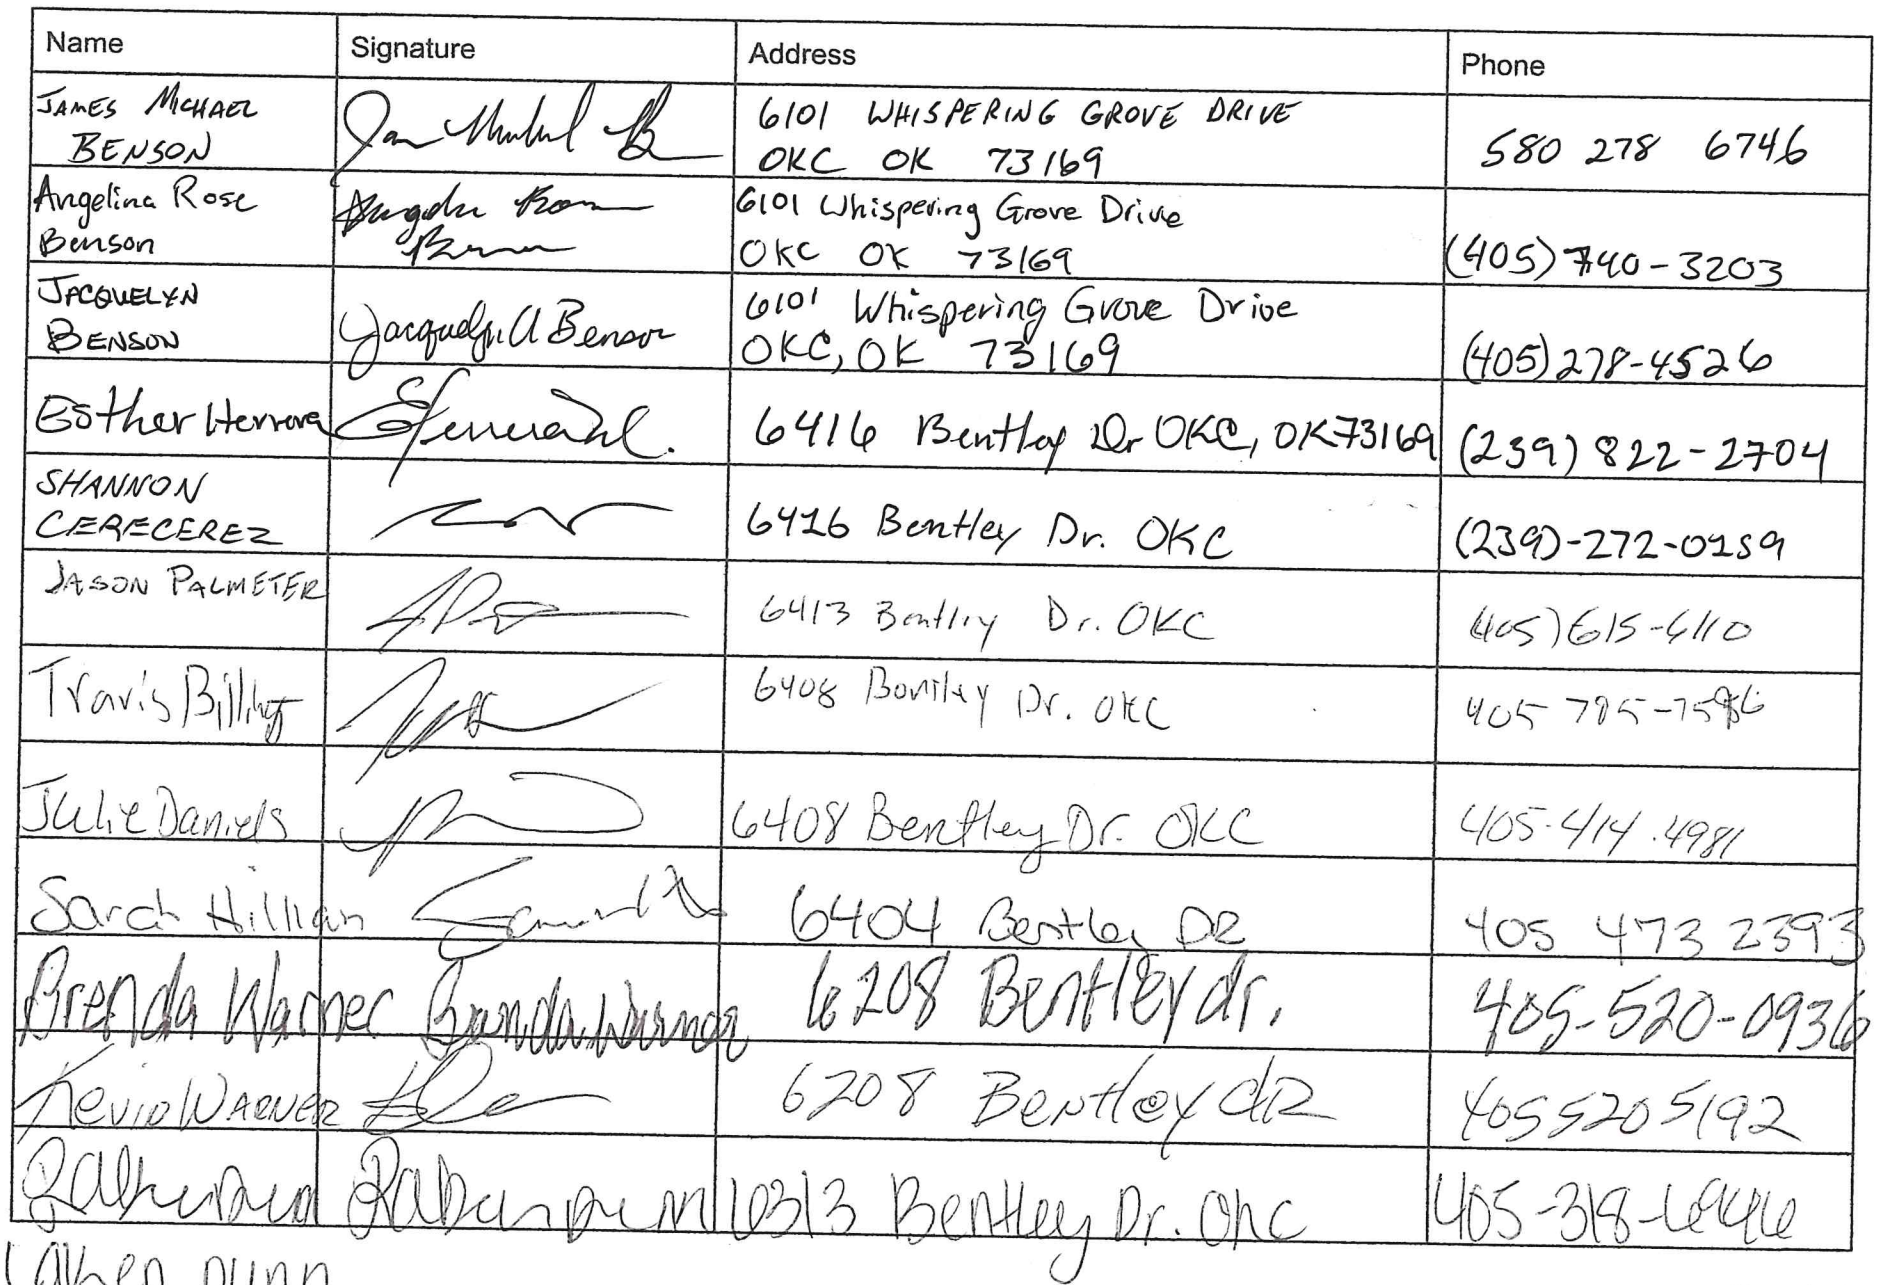 Name Signature Address Phone
JAMES MICHAEL
BENSON
6101 WHISPERING GROVE DRIVE
OKC OK 73169
580 278 6746
Angelina Rose
Benson
6101 Whispering Grove Drive
OKC OK 73169
(405) 740-3203
JACQUELYN
BENSON
Jacquelyn A Benson
6101 Whispering Grove Drive
OKC, OK 73169
(405) 278-4526
Esther Herrera
6416 Bentley Dr OKC, OK 73169
(239) 822-2704
SHANNON
CERECEREZ
6416 Bentley Dr. OKC
(239)-272-0159
JASON PALMETER
6413 Bentley Dr. OKC
405) 615-6110
Travis
6408 Bentley Dr. OKC
405
Julie Daniels
6408 Bentley Dr. OKC
405-414.4981
Sarah Hillian
6404 Bentley DR
405 473 2393
Brenda Warner Brenda Warner 6208 Bentley dr. 405-520-0936
Kevin WARNER 6208 Bentley dR 405 520 5192
Bentley Dr. OKC
Dunn